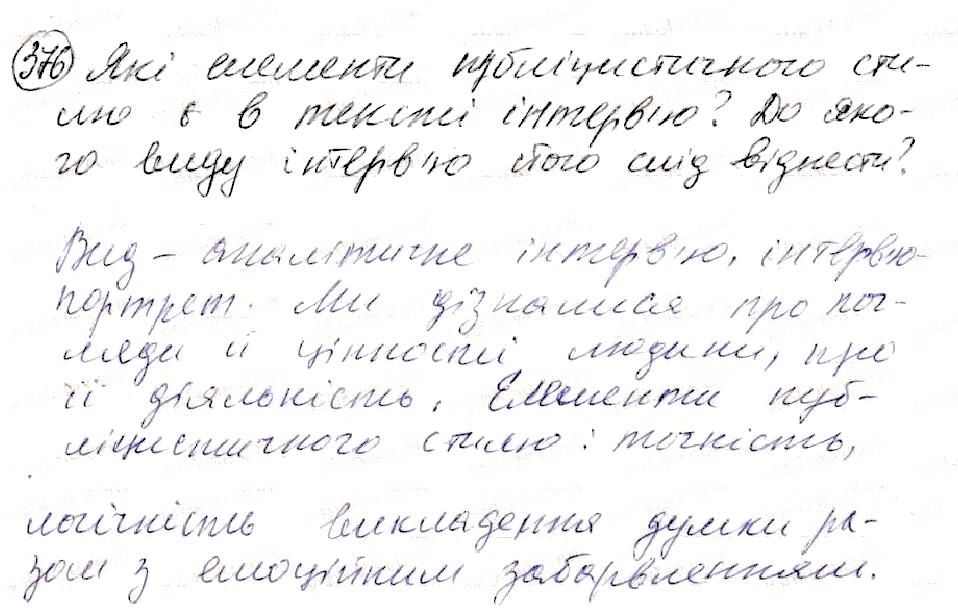 376 Які елементи публіцистичного сти-
лю є в тексті інтерв'ю? До яко-
го виду інтерв'ю його слід віднести?
Вид – аналітичне інтерв'ю, інтерв'ю-
портрет. Ми дізналися про пог-
ляди й цінності людини, про
її діяльність. Елементи пуб-
ліцистичного стилю: точність,
логічність викладення думки ра-
зом з емоційним забарвленням.